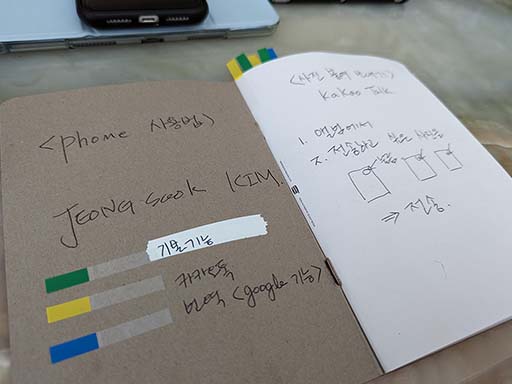 <phone 사용법>
JEONG Sook KIM.
기본기능
카카오톡
번역 <google 기능>
<사진 붙여 보내기>
KaKao Talk
1. 앨범에서
2. 전송하고 싶은 사진을
⇒ 전송.